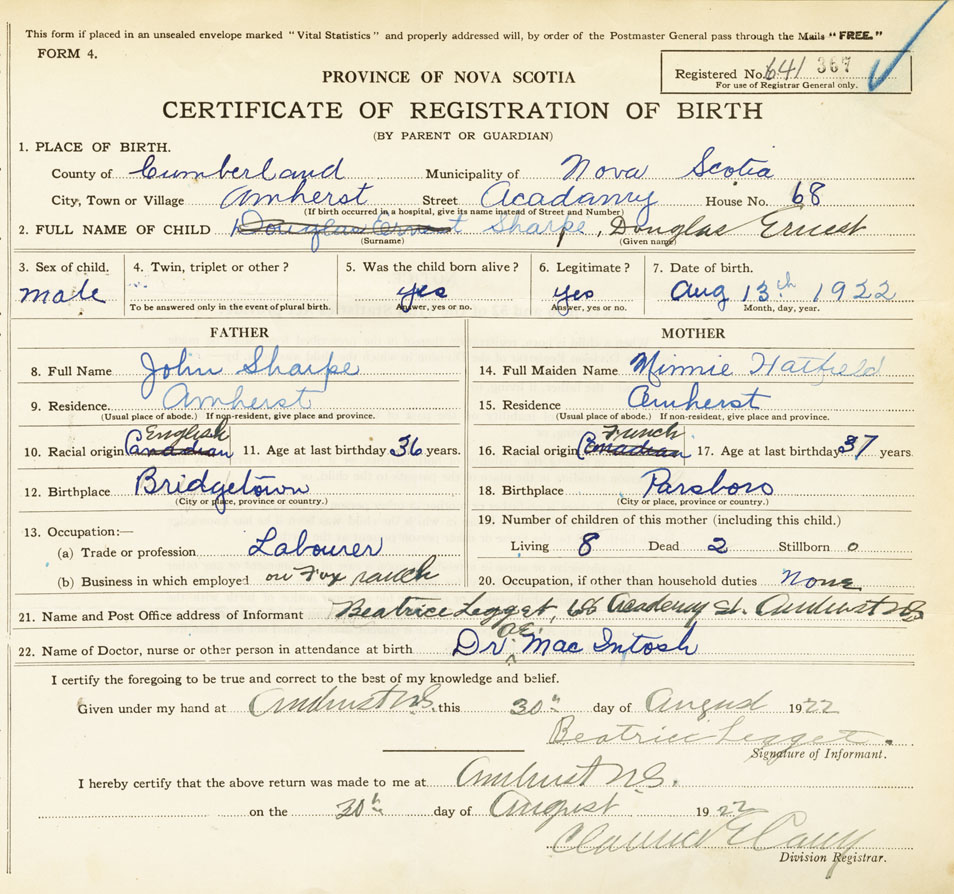 This form if placed in an unsealed envelope marked "Vital Statistics" and properly addressed will, by order of the Postmaster General pass through the Mails "FREE."
FORM 4.
Registered No. 641 367
For use of Registrar General only.
PROVINCE OF NOVA SCOTIA
CERTIFICATE OF REGISTRATION OF BIRTH
(BY PARENT OR GUARDIAN)
1. PLACE OF BIRTH.
County of Cumberland Municipality of Nova Scotia
City, Town or Village Amherst Street Acadamy House No. 68
(If birth occurred in a hospital, give its name instead of Street and Number)
2. FULL NAME OF CHILD Douglas Ernest Sharpe, Douglas Ernest
(Surname) (Given name)
3. Sex of child. 4. Twin, triplet or other? 5. Was the child born alive? 6. Legitimate? 7. Date of birth.
male yes yes Aug 13th 1922
To be answered only in the event of plural birth. Answer, yes or no. Answer, yes or no. Month, day, year.
FATHER
8. Full Name John Sharpe
9. Residence. Amherst
(Usual place of abode.) If non-resident, give place and province.
English
10. Racial origin Canadian 11. Age at last birthday 36 years.
12. Birthplace Bridgetown
(City or place, province or country.)
13. Occupation:—
(a) Trade or profession Labourer
(b) Business in which employed on Fox ranch
MOTHER
14. Full Maiden Name Minnie Hatfield
15. Residence Amherst
(Usual place of abode.) If non-resident, give place and province.
French
16. Racial origin Canadian 17. Age at last birthday 37 years.
18. Birthplace Parsboro
(City or place, province or country.)
19. Number of children of this mother (including this child.)
Living 8 Dead 2 Stillborn 0
20. Occupation, if other than household duties None
21. Name and Post Office address of Informant Beatrice Legget, 68 Academy St. Amherst NS
22. Name of Doctor, nurse or other person in attendance at birth Dr. Mac Intosh
I certify the foregoing to be true and correct to the best of my knowledge and belief.
Given under my hand at Amherst N.S. this 30th day of August 1922
Beatrice Legget.
Signature of Informant.
I hereby certify that the above return was made to me at Amherst N.S.
on the 30th day of August 1922
Division Registrar.